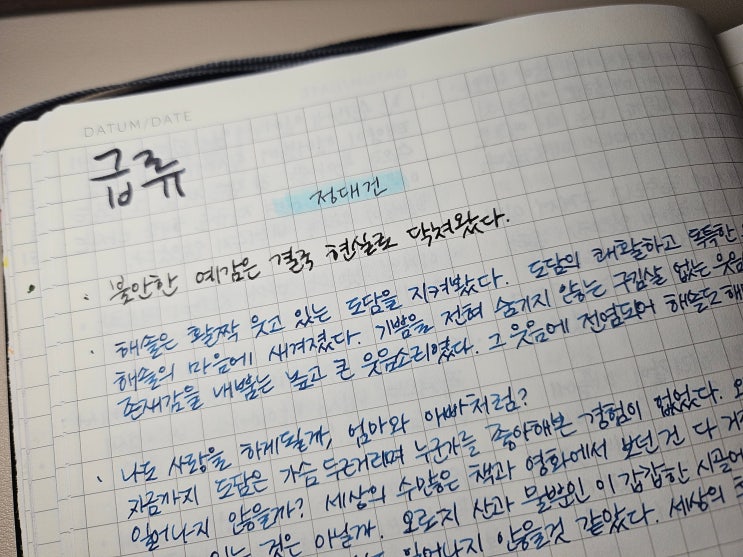 DATUM/DATE
급류
정대건
· 불안한 예감은 결국 현실로 닥쳐왔다.
· 해솔은 활짝 웃고 있는 도담을 지켜봤다. 도담의 쾌활하고 독특한
해솔의 마음에 새겨졌다. 기쁨을 전혀 숨기지 않는 구김살 없는 웃음
존재감을 내뿜는 높고 큰 웃음소리였다. 그 웃음에 전염되어 해솔도 해
· 나도 사랑을 하게될까, 엄마와 아빠처럼?
지금까지 도담은 가슴 두근거리며 누군가를 좋아해본 경험이 없었다.
일어나지 않을까? 세상의 수많은 책과 영화에서 보던 건 다
것은 아닐까. 오로지 산과 물뿐인 이 갑갑한 시골에
일어나지 않을것 같았다. 세상의